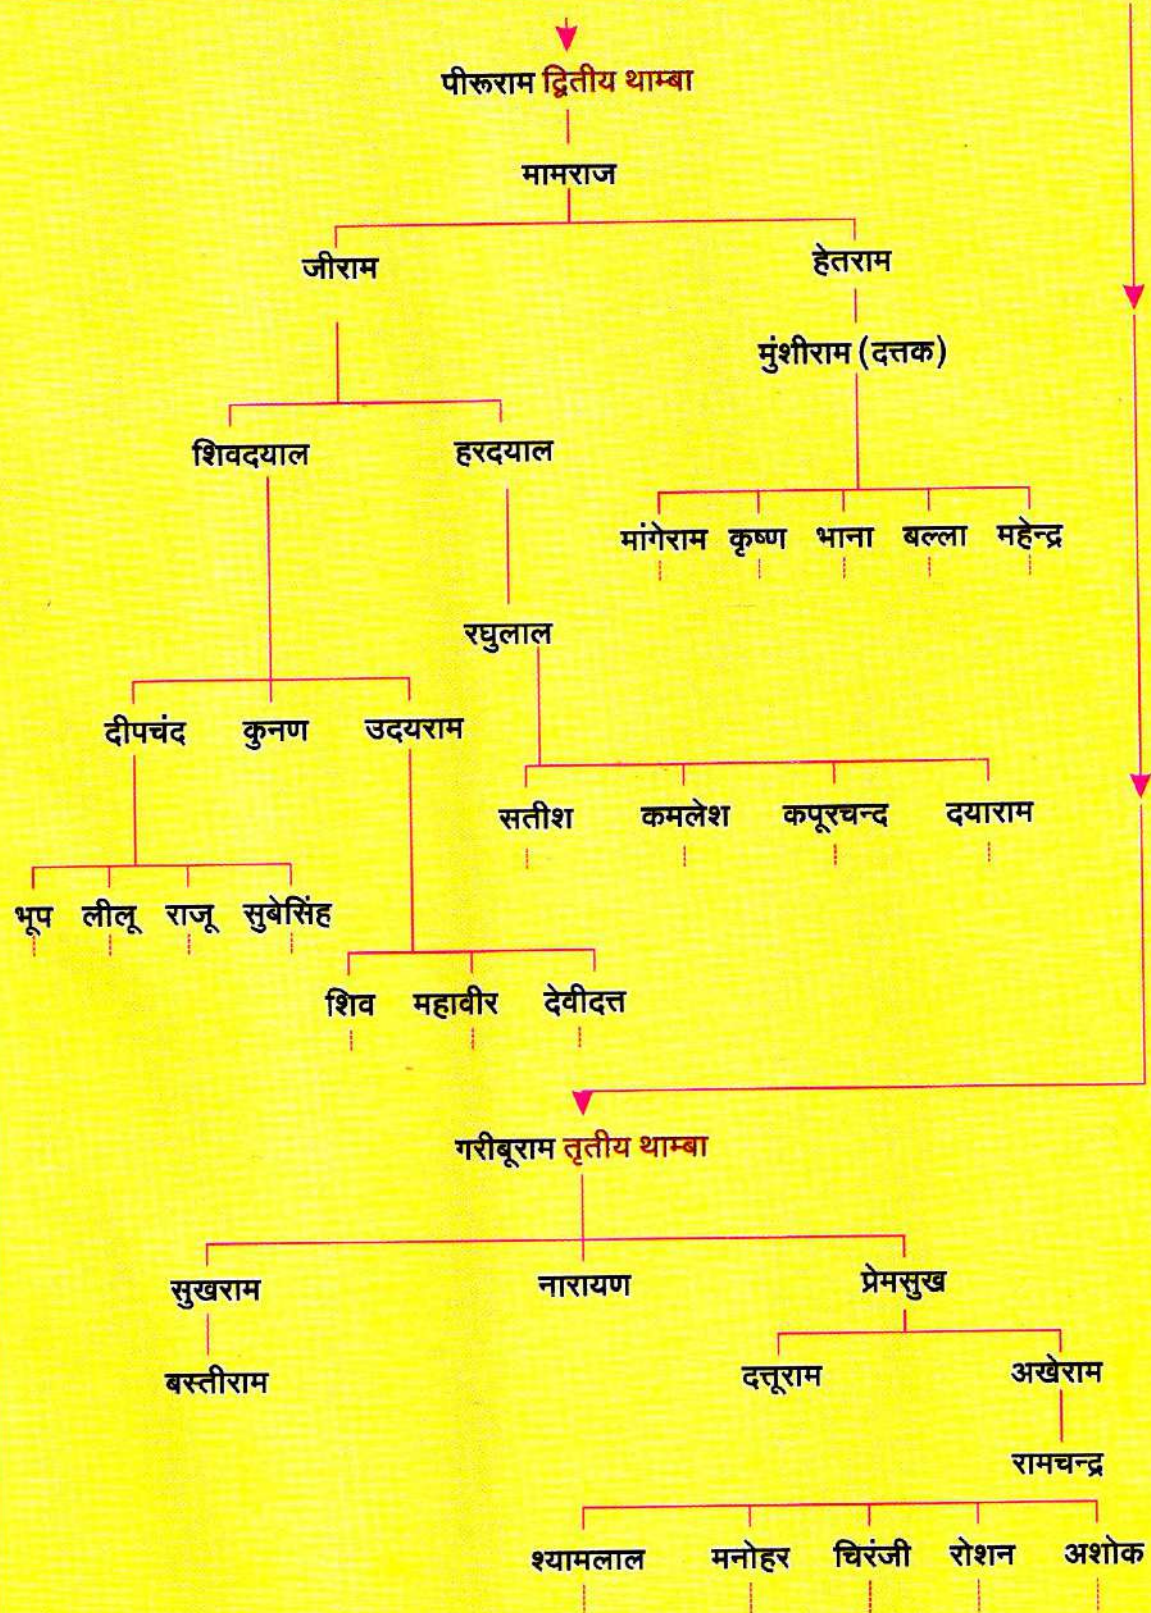 पीरूराम द्वितीय थाम्बा
मामराज
जीराम हेतराम
मुंशीराम (दत्तक)
शिवदयाल हरदयाल
मांगेराम कृष्ण भाना बल्ला महेन्द्र
रघुलाल
दीपचंद कुनण उदयराम
सतीश कमलेश कपूरचन्द दयाराम
भूप लीलू राजू सुबेसिंह
शिव महावीर देवीदत्त
गरीबूराम तृतीय थाम्बा
सुखराम नारायण प्रेमसुख
बस्तीराम दत्तूराम अखेराम
रामचन्द्र
श्यामलाल मनोहर चिरंजी रोशन अशोक